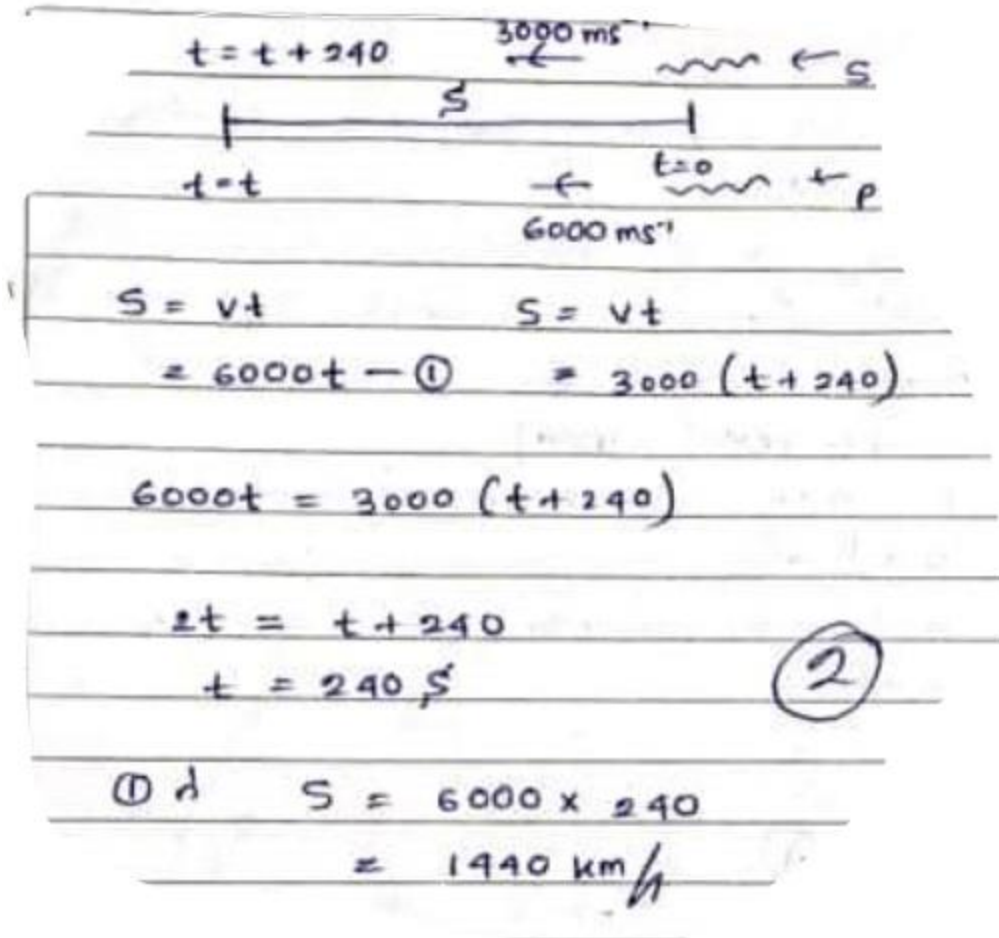 t = t + 240 3000 ms⁻¹ ← S
S
t = t t=0 ← P
6000 ms⁻¹
S = vt S = vt
= 6000t — ① = 3000 (t + 240)
6000t = 3000 (t + 240)
2t = t + 240
t = 240 s
2
① S = 6000 x 240
= 1440 km